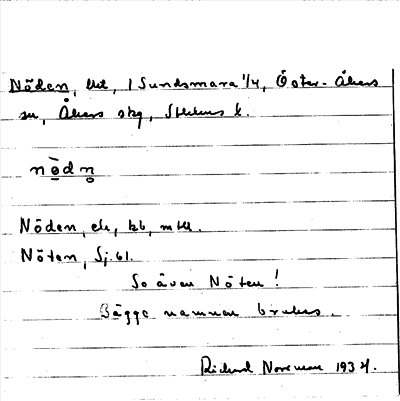 Nöden, lht, 1 Sundsmara 1/4, Öster-Åkers
sn, Åkers skg, Sthlms l.
nödn
Nöden, ek, kb, mtl.
Nöten, Sj. 61.
So även Nöten!
Bägge namnen brukas.
Rickard Noreman 1934.